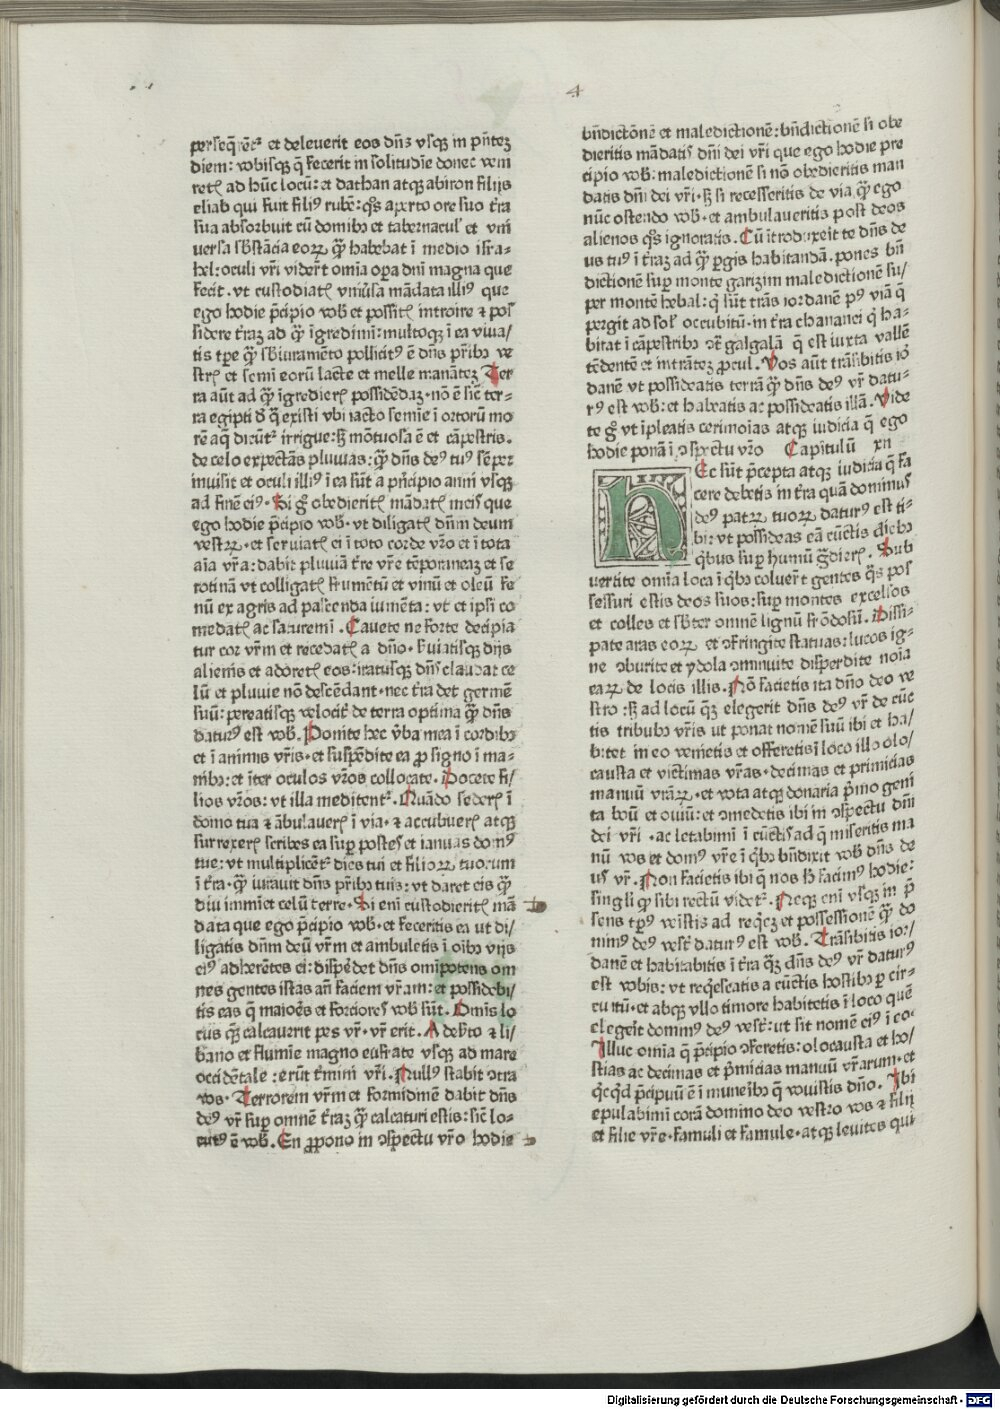 4
perseq̄rēt᷑ et deleverit eos dn̄s vsq̢ in pn̄tez
diem: vobisq̢ q̄ fecerit in solitudīe donec veni
retꝭ ad hūc locū: et dathan atq̢ abiron filijs
eliab qui fuit filiꝰ rubē: q̄s aperto ore suo t̄ra
sua absorbuit cū domibꝫ et tabernaculꝭ et vni
uersa sb̄stācia eoꝝ q̄ȝ habebāt ī medio isra-
hel: oculi vr̄i vider̄t om̄ia oꝑa dn̄i magna que
fecit. vt custodiatꝭ vniūsa mādata illiꝰ que
ego hodie p̄cipio vob̄ et possitꝭ introire ⁊ pos
sidere t̄raȝ ad q̄ȝ īgredimī: multoq̢ ī ea viua/
tis tp̄e q̄ȝ sb̄ iuramēto pollicitꝰ ē dn̄s pr̄ibꝫ ve
strꝭ et semī eorū lacte et melle manātez. Ter
ra aūt ad q̄ȝ īgrederiꝭ possidēdaȝ. nō ē sic̄ ter-
ra egipti d̄ q̄ existi vbi iacto semīe ī ortorū mo
rē aq̄ dicūt᷑ irrigue: sȝ mōtuosa ē et cāpestris.
de celo expectās pluuias: q̄ȝ dn̄s deꝰ tuꝰ sēper
inuisit et oculi illiꝰ ī ea sūt a pn̄cipio anni vsq̢
ad finē eiꝰ. Si gͦ obedieritꝭ mādatꝭ meis que
ego hodie p̄cipio vob̄. vt diligatꝭ dn̄m deum
vestꝝ. et seruiatꝭ ei ī toto corde vr̄o et ī tota
aīa vr̄a: dabit pluuiā t̄re vr̄e tēporaneaȝ et se
rotinā vt colligatꝭ frumētū et vinū et oleū fe
nū ex agris ad pascenda iumēta: vt et ipsi co
medatꝭ ac saturemī. Cauete ne forte decipia
tur cor vr̄m et recedatꝭ a dn̄o. s̄uiatisq̢ dijs
alienis et adoretꝭ eos: iratusq̢ dn̄s claudat ce
lū et pluuie nō descēdant. nec t̄ra det germē
suū: pereatisq̢ velocit̄ de terra optima q̄ȝ dn̄s
daturꝰ est vob̄. Ponite hec v̄ba mea ī cordibꝫ
et ī animis vr̄is. et suspēdite ea ꝓ signo ī ma-
nibꝫ: et īter oculos vr̄os collocate. Docete fi/
lios vr̄os: vt illa meditent᷑. Quādo sederꝭ ī
domo tua ⁊ ābulauerꝭ ī via. ⁊ accubuerꝭ atq̢
surrexerꝭ scribes ea suꝑ postes et ianuas domꝰ
tue: vt multiplicēt᷑ dies tui et filioꝝ tuorum
ī t̄ra. q̄ȝ iurauit dn̄s pr̄ibꝫ tuis: vt daret eis q̄ȝ
diu imminet celū terre. Si eni custodieritꝭ mā
data que ego p̄cipio vob̄. et feceritis ea ut di/
ligatis dn̄m deū vr̄m et ambuletis ī oībꝫ vijs
eiꝰ adherētes ei: dispēdet dn̄s om̄ipotens om
nes gentes istas an̄ faciem vr̄am: et possidebi/
tis eas q̄ maioēs et fortiores vob̄ sūt. Om̄is lo
cus q̄ȝ calcauerit pes vr̄. vr̄ erit. A deb̄to ⁊ li/
bano et flumīe magno eufrate vsq̢ ad mare
occidētale: erūt t̄mini vr̄i. Nullꝰ stabit ↄtra
vos. Terrorem vr̄m et formidinē dabit dn̄s
deꝰ vr̄ suꝑ omnē t̄raȝ q̄ȝ calcaturi estis: sic̄ lo-
cutꝰ ē vob̄. En ꝓpono in ↄspectu vr̄o hodie
bn̄dictōnē et maledictionē: bn̄dictionē si obe
dieritis mādatꝭ dn̄i dei vr̄i que ego hodie pre
cipio vob̄: maledictionē si nō obedieritis man
datis dn̄i dei vr̄i. sȝ si recesseritis de via q̄ȝ ego
nūc ostendo vob̄. et ambulaueritis post deos
alienos q̄s ignoratis. Cū itroduxeit te dn̄s de
us tuꝰ ī t̄raȝ ad q̄ȝ ꝑgis habitandā. pones bn̄
dictionē suꝑ monte garizim maledictionē su/
per montē hebal: q̄ sūt trās iordanē pꝰ viā q̄
pergit ad solꝭ occubitū. in t̄ra chananei q̄ ha-
bitat ī cāpestribꝫ ↄt̄ galgalā q̄ est iuxta vallē
tēdentē et intrātez ꝓcul. Vos aūt trāsibitis io
danē vt possideatis terrā q̄ȝ dn̄s deꝰ vr̄ datu-
rꝰ est vob̄: et habeatis ac possideatis illā. Vide
te gͦ vt ipleatis cerimoīas atq̢ iudicia q̄ ego
hodie ponā ī ↄspectu vr̄o Capitulū xii
HEc sūt p̄cepta atq̢ iudicia q̄ fa
cere debetis in t̄ra quā dominus
deꝰ patꝝ tuoꝝ daturꝰ est ti-
bi: vt possideas eā cūctis diebꝫ
q̄bus suꝑ humū ḡdierꝭ. Sub
uertite om̄ia loca ī q̄bꝫ coluer̄t gentes q̄s pos
sessuri estis deos suos: suꝑ montes excelsos
et colles et sb̄ter omnē lignū frōdosū. Dissi-
pate aras eoꝝ et ↄfringite statuas: lucos ig-
ne ↄburite et ydola ↄminuite disperdite noīa
eaꝝ de locis illis. Nō facietis ita dn̄o deo ve
stro: sȝ ad locū q̄ȝ elegerit dn̄s deꝰ vr̄ de cūc
tis tribubꝫ vr̄is ut ponat nomē suū ibi et ha/
bitet in eo venietis et offeretis ī loco illo olo/
causta et victimas vr̄as. decimas et primicias
manuū vr̄aꝝ. et vota atq̢ donaria p̄mo geni
ta boū et ouiū: et ↄmedetis ibi in ↄspectu dn̄i
dei vr̄i. ac letabimī ī cūctis ad q̄ miseritis ma
nū vos et domꝰ vr̄e ī q̄bꝫ bn̄dixit vob̄ dn̄s de
us vr̄. Non facietis ibi q̄ nos h̄ facimꝰ hodie:
singli q̄ȝ sibi rectū videt᷑. Neq̢ eni vsq̢ in p̄
sens tp̄ꝰ veistis ad reqēȝ et possessionē q̄ȝ do
minꝰ deꝰ vesr̄ daturꝰ est vob̄. Trāsibitis ior/
danē et habitabitis ī t̄ra q̄ȝ dn̄s deꝰ vr̄ daturꝰ
est vobis: vt req̄escatis a cūctis hostibꝫ ꝑ cir-
cuitū. et absq̢ vllo timore habitetis ī loco quē
elegeīt dominꝰ deꝰ vesr̄: ut sit nomē eiꝰ ī eo.
Illuc om̄ia q̄ p̄cipio ↄferetis: olocausta et ho/
stias ac decimas et p̄micias manuū vr̄arum. et
qͥcqͥd p̄cipuū ē ī muneībꝫ q̄ vouistis dn̄o. Ibi
epulabimī corā domino deo vestro vos ⁊ filij
et filie vr̄e. famuli et famule. atq̢ leuites qui
Digitalisierung gefördert durch die Deutsche Forschungsgemeinschaft - DFG